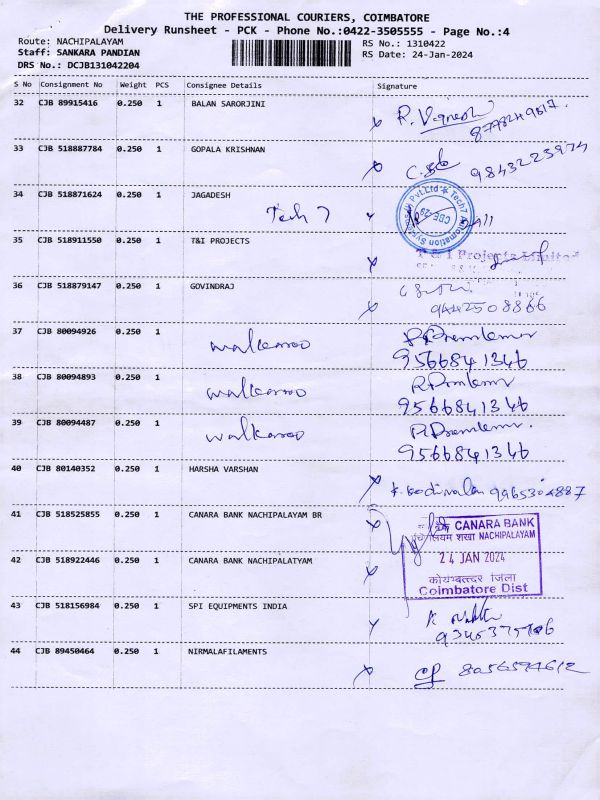 THE PROFESSIONAL COURIERS, COIMBATORE
Delivery Runsheet - PCK - Phone No.:0422-3505555 - Page No.:4
Route: NACHIPALAYAM
RS No.: 1310422
Staff: SANKARA PANDIAN
RS Date: 24-Jan-2024
DRS No.: DCJB131042204
S No Consignment No Weight PCS Consignee Details Signature
32 CJB 89915416 0.250 1 BALAN SARORJINI
33 CJB 518887784 0.250 1 GOPALA KRISHNAN
9843223974
34 CJB 518871624 0.250 1 JAGADESH
Tech 7
35 CJB 518911550 0.250 1 T&I PROJECTS
T & I Projects Limited
36 CJB 518879147 0.250 1 GOVINDRAJ
9442508866
37 CJB 80094926 0.250 1 walkaroo
9566841346
38 CJB 80094893 0.250 1 walkaroo
9566841346
39 CJB 80094487 0.250 1 walkaroo
9566841346
40 CJB 80140352 0.250 1 HARSHA VARSHAN
41 CJB 518525855 0.250 1 CANARA BANK NACHIPALAYAM BR
CANARA BANK
शाखा NACHIPALAYAM
24 JAN 2024
42 CJB 518922446 0.250 1 CANARA BANK NACHIPALATYAM
जिला
Coimbatore Dist
43 CJB 518156984 0.250 1 SPI EQUIPMENTS INDIA
44 CJB 89450464 0.250 1 NIRMALAFILAMENTS
8056594612